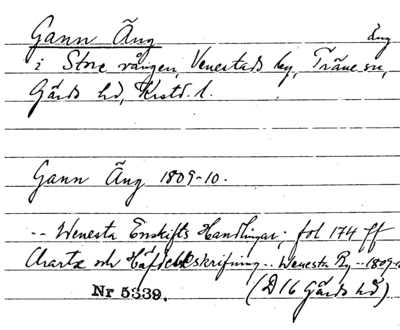 Gann Äng äng
i Store vången, Venestads by, Träne sn,
Gärds hd, Krstd. l.
Gann Äng 1809-10.
-- Wenesta Enskifts Handlingar; fol 174 ff
Charta och Häfdebeskrifning -- Wenesta By -- 1809-10
Nr 5339. (D16 Gärds hd)